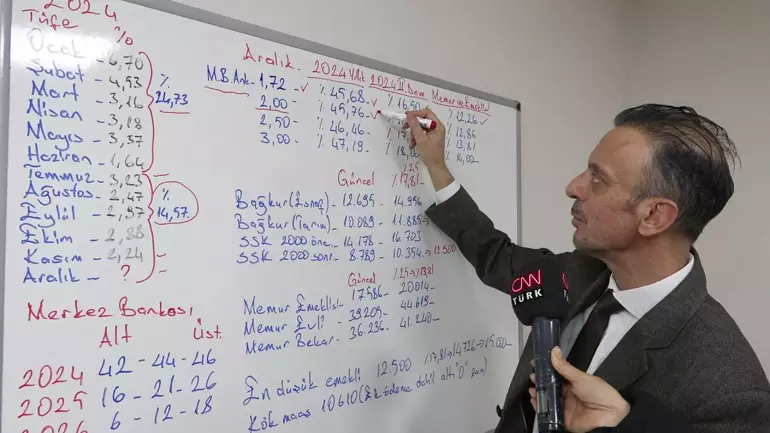 2024
Tüfe %
Ocak - 6,70
Şubat - 4,53
Mart - 3,16
Nisan - 3,18
Mayıs - 3,37
Haziran - 1,64
% 24,73
Temmuz - 3,23
Ağustos - 2,47
Eylül - 2,97
Ekim - 2,88
Kasım - 2,24
Aralık - ?
% 14,57
Merkez Bankası
Alt Üst
2024 42 - 44 - 46
2025 16 - 21 - 26
2026 6 - 12 - 18
Aralık 2024 Yıllık 2024 II.Dönem Memur ve Emeklisi
M.B. Ank - 1,72 - % 45,68 % 16,50 % 12,26
2,00 - % 45,76 % 12,86
2,50 - % 46,46 % 13,81
3,00 - % 47,19 % 18,00 % 14,00
Güncel % 17,81
Bağkur (Esnaf) - 12.695 - 14.956
Bağkur (Tarım) - 10.089 - 11.885
SSK 2000 önc. 14.178 - 16.703
SSK 2000 sonr. - 8.789 - 10.354 → 12.500
Güncel % 13,81
Memur Emeklisi - 17.586 - 20014
Memur Evli - 39.205 - 44.619
Memur Bekar - 36.236 - 41.240
En düşük emekli 12.500 % 17,81 → 14726 → 15.000
Kök maaş 10610 (Ek ödeme dahil altı "0" zam)
CNN
TÜRK